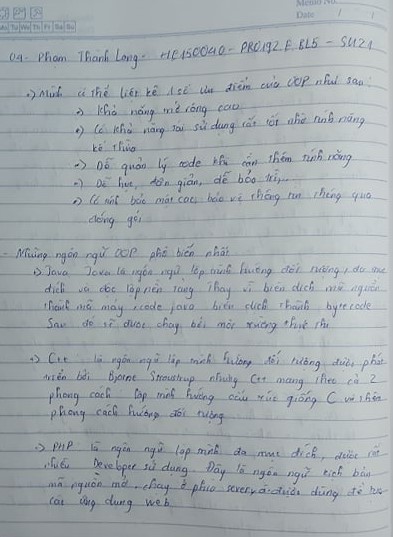 Memo No.
Date / /
Mo Tu We Th Fr Sa Su
04 - Phạm Thành Long - HE150040 - PRO192.E.BL5 - SU21
Mình có thể liệt kê 1 số ưu điểm của OOP như sau:
Khả năng mở rộng cao
Có khả năng tái sử dụng rất tốt nhờ tính năng
kế thừa
Dễ quản lý code khi cần thêm tính năng
Dễ học, đơn giản, dễ bảo trì,..
Có tính bảo mật cao, bảo vệ thông tin thông qua
đóng gói
- Những ngôn ngữ OOP phổ biến nhất
Java: Java là ngôn ngữ lập trình hướng đối tượng, đa mục
đích và độc lập nền tảng. Thay vì biên dịch mã nguồn
thành mã máy, code java biên dịch thành bytecode
Sau đó sẽ được chạy bởi môi trường thực thi
C++ là ngôn ngữ lập trình hướng đối tượng được phát
triển bởi Bjarne Stroustrup nhưng C++ mang theo cả 2
phong cách lập trình hướng cấu trúc giống C và thêm
phong cách hướng đối tượng
PHP là ngôn ngữ lập trình đa mục đích, được rất
nhiều Developer sử dụng. Đây là ngôn ngữ kịch bản
mã nguồn mở, chạy ở phía server được dùng để tạo
các ứng dụng web